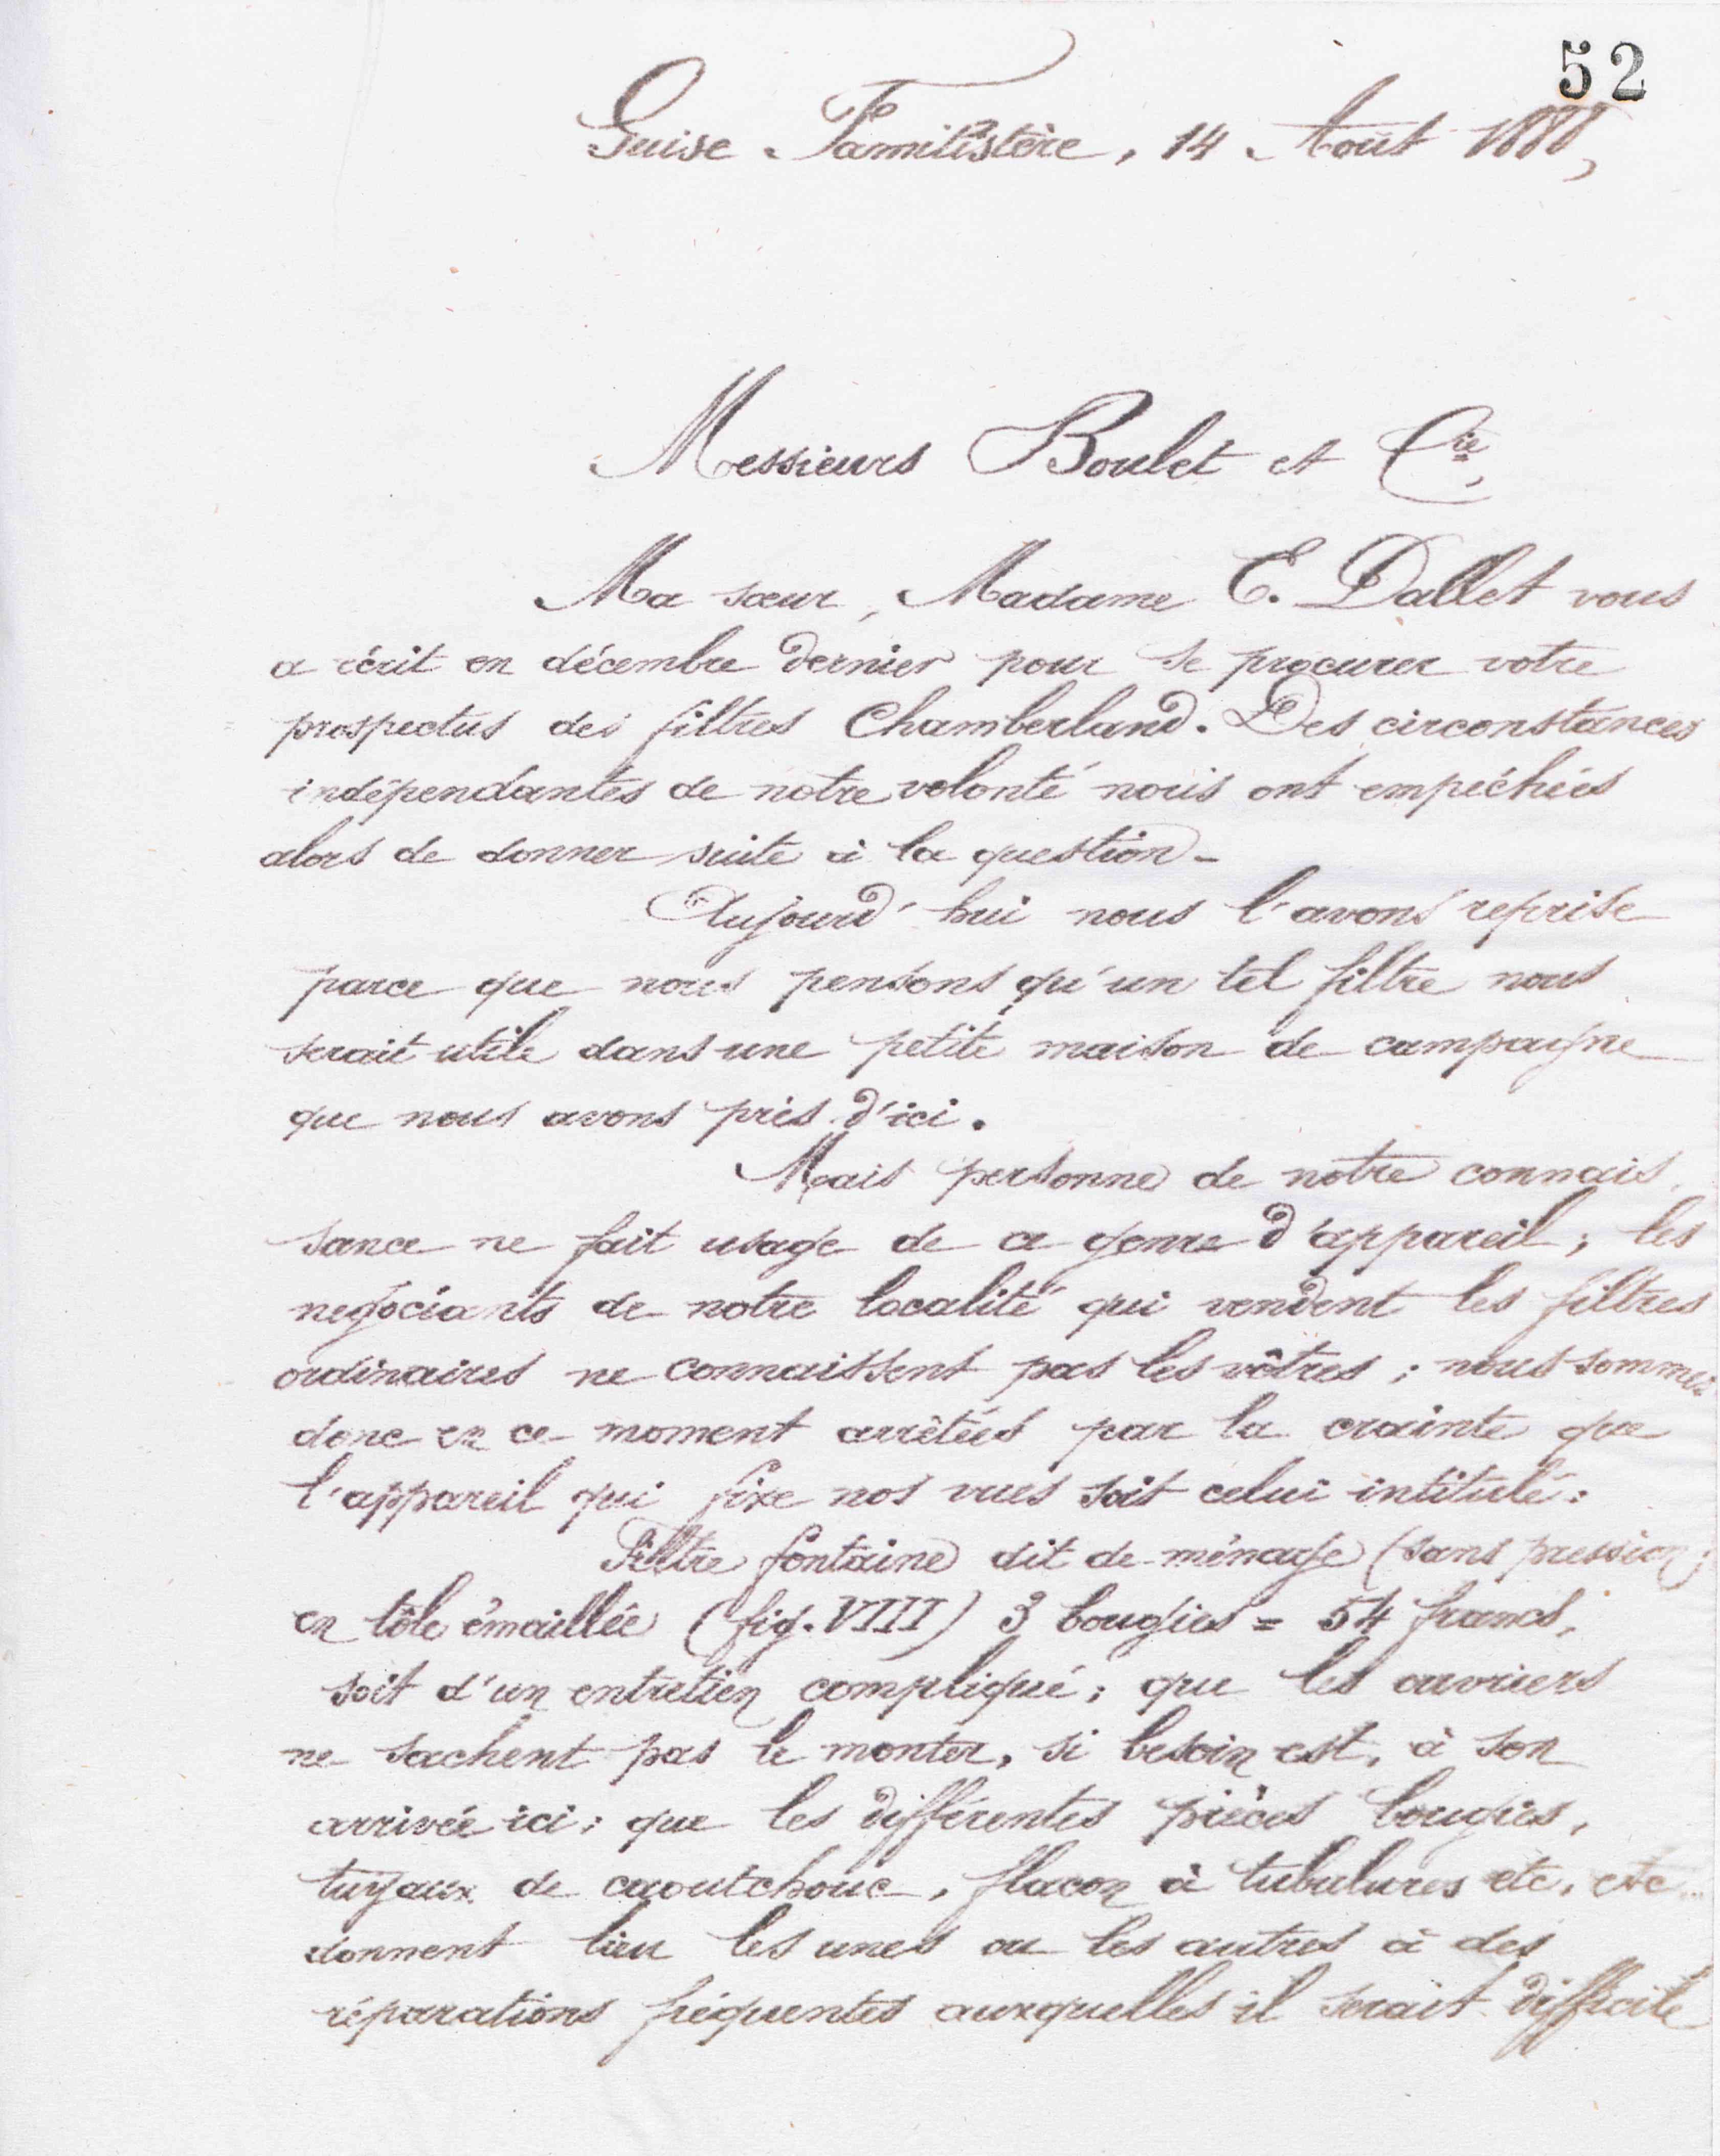 52
Guise Familistère, 14 Août 1888,
Messieurs Boulet et Cie,
Ma sœur, Madame E. Dallet vous
a écrit en décembre dernier pour se procurer votre
prospectus des filtres Chamberland. Des circonstances
indépendantes de notre volonté nous ont empêchées
alors de donner suite à la question -
Aujourd'hui nous l'avons reprise
parce que nous pensons qu'un tel filtre nous
serait utile dans une petite maison de campagne
que nous avons près d'ici.
Mais personne de notre connais
sance ne fait usage de ce genre d'appareil; les
négociants de notre localité qui vendent les filtres
ordinaires ne connaissent pas les vôtres; nous sommes
donc en ce moment arrêtées par la crainte que
l'appareil qui fixe nos vues soit celui intitulé:
Filtre fontaine dit de ménage (sans pression)
en tôle émaillée (fig. VIII) 3 bougies = 54 francs,
soit d'un entretien compliqué; que les ouvriers
ne sachent pas le monter, si besoin est, à son
arrivée ici; que les différentes pièces bougies,
tuyaux de caoutchouc, flacon à tubulures etc, etc...
donnent lieu les unes ou les autres à des
réparations fréquentes auxquelles il serait difficile